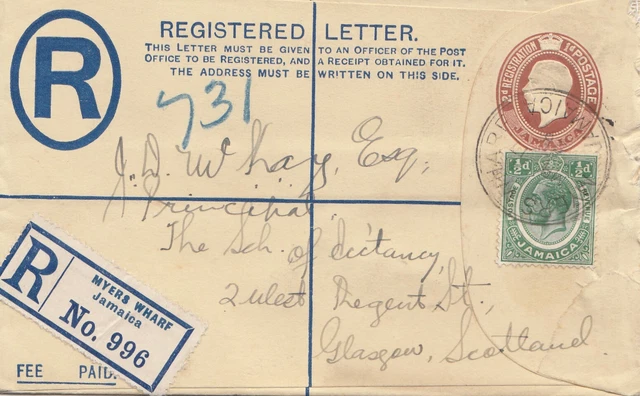 REGISTERED LETTER.
THIS LETTER MUST BE GIVEN TO AN OFFICER OF THE POST
OFFICE TO BE REGISTERED, AND A RECEIPT OBTAINED FOR IT.
THE ADDRESS MUST BE WRITTEN ON THIS SIDE.
R
2d REGISTRATION 1d POSTAGE
JAMAICA
731
½d ½d
POSTAGE REVENUE
JAMAICA
J. D. McKay, Esq.,
Principal
The Sch. of dictancy,
2 West Regent St.,
Glasgow, Scotland
R
MYERS WHARF
Jamaica
No. 996
FEE PAID.